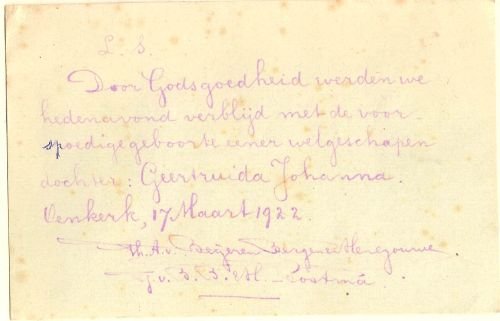 L. S.
Door Godsgoedheid werden we
hedenavond verblijd met de voor-
spoedige geboorte eener welgeschapen
dochter: Geertruida Johanna.
Oenkerk, 17 Maart 1922.
Th. A. v. Beijeren Bergen en Henegouwe.
J. v. B. B. e H. - Postma